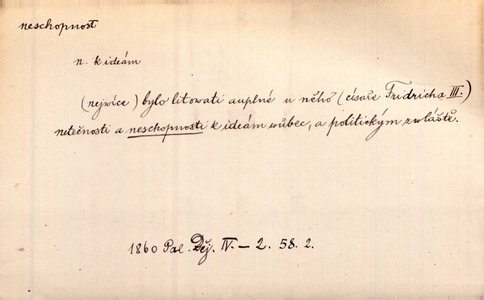 neschopnost
n. k ideám
(nejwíce) bylo litowati auplné u něho (císaře Fridricha III.)
netečnosti a neschopnosti k ideám wůbec, a politickým zwláště.
1860 Pal. Děj. IV. – 2. 58. 2.